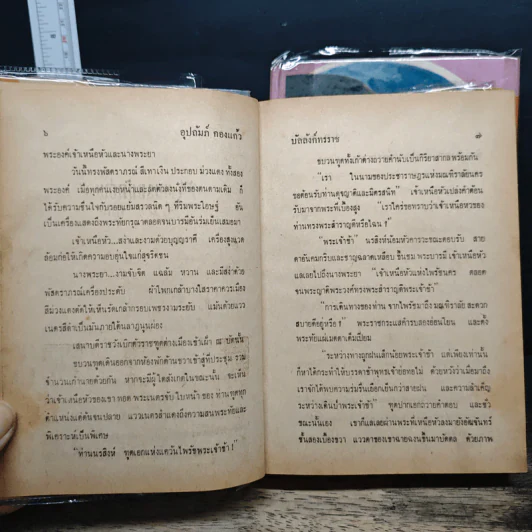 ๖ อุปถัมภ์ กองแก้ว
พระองค์เจ้าเหนือหัวและนางพระยา
วันนี้ทรงพัสตราภรณ์ สีเทาเงิน ประกอบ ม่วงแดง ทั้งสอง
พระองค์ เมื่อทุกคนเงยหน้าและลดตัวลงนั่งที่ของตนตามเดิม ก็
ได้รับความชื่นใจกับรอยแย้มสรวลนิด ๆ ที่ริมพระโอษฐ์ อัน
เป็นเครื่องแสดงถึงพระทัยกรุณาตลอดจนบารมีอันร่มเย็นเสมอมา
เจ้าเหนือหัว...สง่าและงามด้วยบุญญาธิ เครื่องสูงแวด
ล้อมก่อให้เกิดความอบอุ่นใจแก่สุจริตชน
นางพระยา....งามจับจิต แฉล้ม หวาน และมีสง่าด้วย
พัสตราภรณ์เครื่องประดับ ผ้าไพเกล้าบางใสราคาควรเมือง
สีม่วงแดงตัดให้เห็นรัดเกล้ากรอบเพชรงามระยับ แม้นด้วยแวว
เนตรสีดาเป็นมันภายใต้
เสนาบดีราชวังเบิกตัวราชทูตต่างเมืองเข้าเฝ้า ณ บัดนั้น
ขบวนทูตเดินออกจากห้องพักด้านขวาเข้าสู่ที่ประชุม รวม
จำนวนเก้านายด้วยกัน หากจะมีผู้ใดสังเกตในขณะนั้น จะเห็น
ว่าเจ้าเหนือหัวของเขา ทอด พระเนตรจับ ใบหน้า ของ ท่านทูตทุก
ตำแหน่งแต่ต้นจนปลาย แววเนตรสำแดงถึงความสนพระทัยและ
พิเคราะห์เป็นพิเศษ
“ท่านนรสิงห์ ทูตเอกแห่งแคว้นไพรัชพระเจ้าข้า !”
บัลลังก์ทรราช ๗
ขบวนทูตทั้งเก้าต่างถวายคำนับเป็นกิริยาสากลพร้อมกัน
“เรา ในนามของประชาราษฎรแห่งมณฑิราลัยนคร
ขอต้อนรับท่านดุจญาติและมิตรสนิท” เจ้าเหนือหัวเปล่งคำต้อน
รับมาจากพระที่เบื้องสูง “เราใคร่ขอทราบว่าเจ้าเหนือหัวของ
ท่านทรงพระสำราญดีหรือไฉน !”
“พระเจ้าข้า” นรสิงห์น้อมหัวคารวะขณะตอบรับ สาย
ตาอันคมกริบและชาญฉลาดเหลือบ ชื่นชม พระบารมี เจ้าเหนือหัว
และเลยไปถึงนางพระยา “เจ้าเหนือหัวแห่งไพรัชนคร ตลอด
จนพระญาติพระวงศ์ทางพระสำราญดีพระเจ้าข้า”
“การเดินทางของท่าน จากไพรัชมาถึง มณฑิราลัย สะดวก
สบายดีอยู่หรือ !” พระราชกระแสดำรบสองอ่อนโยน และดั่ง
พระทัยแผ่เมตตาเต็มเปี่ยม
ระหว่างทางถูกฝนเล็กน้อยพระเจ้าข้า แต่เพียงเท่านั้น
ก็หาได้กระทำให้บรรดาข้าพุทธเจ้าย่อท้อไม่ ด้วยหวังว่าเมื่อมาถึง
เราจักได้พบความร่มรื่นเยือกเย็นกว่าสายฝน และความลำเค็ญ
ระหว่างเดินป่าพระเจ้าข้า” ทูตปากเอกถวายคำตอบ และชั่ว
ขณะนั้นเอง เขาก็แลเลยผ่านพระที่เหนือหัวลงมายังอัฒจันทร์
ชั้นสองเบื้องขวา แววตาของเขาฉายฉงนขึ้นมาบัดดล ด้วยภาพ